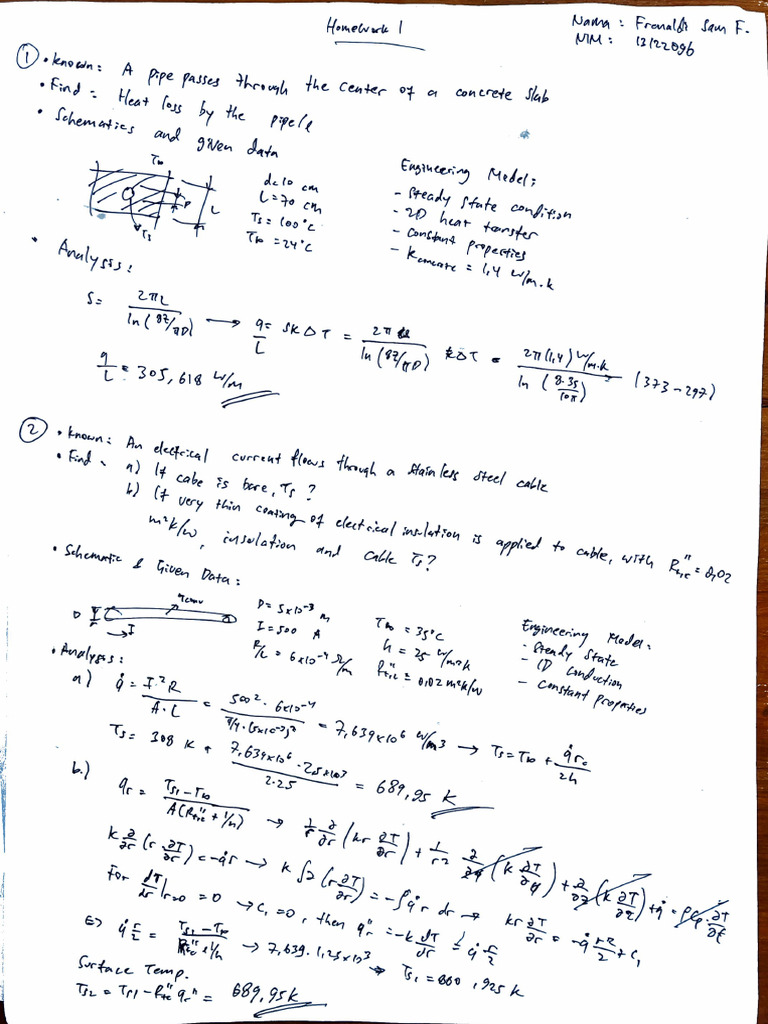 Homework 1
Nama : Frenaldi Sam F.
NIM : 13122096
① • Known : A pipe passes through the center of a concrete slab
• Find : Heat loss by the pipe/l
• Schematics and given data
T∞
D
L
Ts
d=10 cm
L=70 cm
Ts=100°C
T∞=24°C
Engineering Model :
- Steady state condition
- 2D heat transfer
- constant properties
- Kconcrete = 1,4 W/m.k
• Analysis :
S = 2πL / ln(8Z/πD) → q/L = SKΔT = 2π / ln(8Z/πD) kΔT = 2π(1,4) W/m.k / ln(8.35/10π) (373-297)
q/L = 305,618 W/m
② • Known : An electrical current flows through a stainless steel cable
• Find : a) If cabe is bare, Ts ?
b) If very thin coating of electrical insulation is applied to cable, with R"t,c = 0,02
m²k/w, insulation and cable Ts?
• Schematic & Given Data :
qconv
D
I
D = 5x10⁻³ m
I = 500 A
R/L = 6x10⁻⁴ Ω/m
T∞ = 35°C
h = 25 W/m²k
R"t,c = 0,02 m²k/w
Engineering Model :
- Steady State
- 1D conduction
- Constant properties
• Analysis :
a) q̇ = I²R / A.L = 500². 6x10⁻⁴ / π/4.(5x10⁻³)² = 7,639x10⁶ W/m³ → Ts = T∞ + q̇r₀/2h
Ts = 308 K + 7,639x10⁶ . 2,5x10³ / 2.25 = 689,95 K
b.)
qr = Ts1-T∞ / A(R"t,c + 1/h) → 1/r ∂/∂r (kr ∂T/∂r) + 1/r² ∂/∂φ (k ∂T/∂φ) + ∂/∂z (k ∂T/∂z) + q̇ = ρCp ∂T/∂t
k ∂/∂r (r ∂T/∂r) = -q̇r → k ∫∂(r ∂T/∂r) = -∫q̇ r dr → kr ∂T/∂r = -q̇ r²/2 + C₁
For dT/dr|r=0 = 0 → C₁ = 0, then q"r = -k dT/dr = q̇ r/2
⇒ q̇ r/2 = Ts1-T∞ / R"t,c + 1/h → 7,639. 1,25x10³ → Ts1 = 860,925 K
Surface Temp.
Ts2 = Ts1 - R"tc q"r = 689,95 K